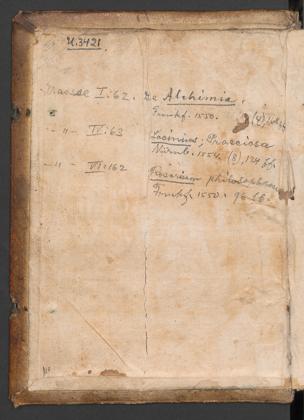 U.3421
Graesse I:62. De Alchimia.
Frankf. 1550. (4),
-"- IV:63 Lacinius, Praeciosa
Nürnb. 1554. (8), 124 ff.
-"- VI:162 Rosarium philosophorum
Frankf. 1550. 96 ff.